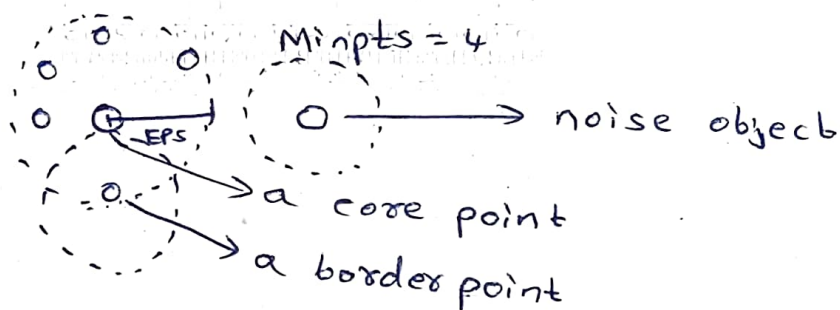 Minpts = 4
noise object
EPS
a core point
a border point